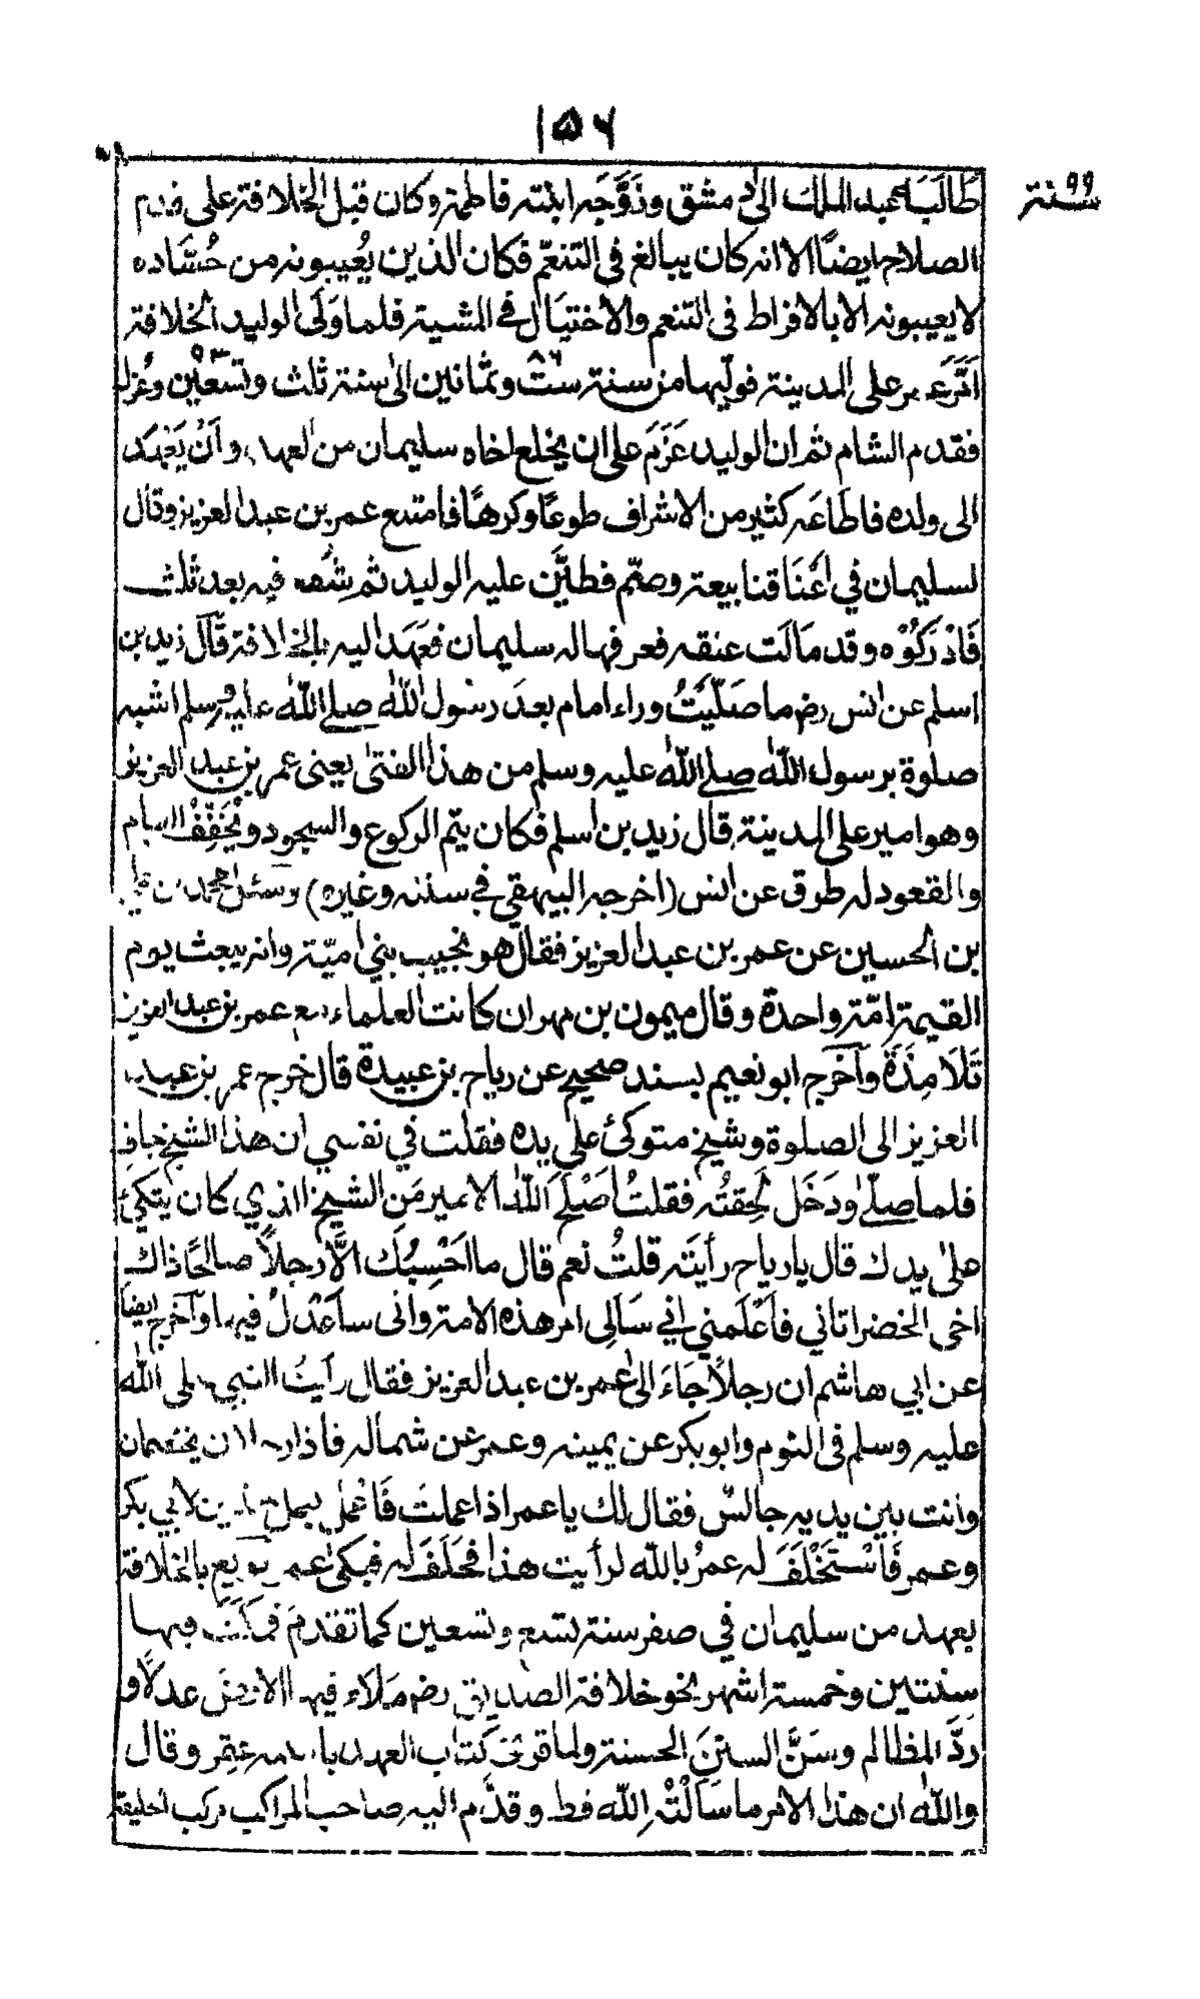 ١٥٦
سنة ٩٩
طَالَبَهُ عبد الملك الى دمشق وزَوَّجَه ابنته فاطمة وكان قبل الخلافة على قدم
الصلاح ايضًا الا انه كان يبالغ فى التنعّم فكان الذين يُعيبونه من حُسّاده
لا يعيبونه الا بالافراط فى التنعم والاختيَال فى المشية فلما وَلَى الوليد الخلافة
اَمَّرَ عمر على المدينة فوليها من سنة ست وثمانين ٨٦ الى سنة ثلث وتسعين ٩٣ وعُزل
فقدم الشام ثم ان الوليد عَزَمَ على ان يخلع اخاه سليمان من العهد وأَنْ يَعْهَد
الى ولده فاطَاعَه كثير من الاشراف طوعًا وكرهًا فامتنع عمر بن عبد العزيز وقال
لسليمان في أَعْنَاقنا بيعة وصمّم فطيَّن عليه الوليد ثم شُفع فيه بعد ثلث
فَاَدْرَكُوْه وقد مَالَت عنقه فعرفها له سليمان فعَهَد اليه بالخلافة قَالَ زيد بن
اسلم عن انس رض ما صَلّيْتُ وراء امام بعدَ رسول اللّٰه صلى اللّٰه عليه وسلم اشبه
صلوة برسول اللّٰه صلى اللّٰه عليه وسلم من هذا الفتى يعنى عمر بن عبد العزيز
وهو امير على المدينة قال زيد بن اسلم فكان يتم الركوع والسجود ويُخَفِّفُ القيام
والقعود له طرق عن انس (اخرجه البيهقي في سننه وغيره) وسئل محمد بن علي
بن الحسين عن عمر بن عبد العزيز فقال هو نجيب بني اميّة وانه يبعث يوم
القيمة امّة واحدة وقال ميمون بن مهران كانت العلماء مع عمر بن عبد العزيز
تَلَامِذَةً وآخرج ابو نعيم بسند صحيح عن رياح بن عبيدة قال خرج عمر بن عبد
العزيز الى الصلوة وشيخ متوكئ على يده فقلت في نفسي ان هذا الشيخ جاف
فلما صلّى ودَخَل لَحِقتُه فقلتُ أصْلَحَ اللّٰه الامير مَنِ الشيخ الذي كان يتكئ
على يدك قال يا رياح رأيتَه قلتُ نعم قال ما اَحْسِبُكَ الَّا رجلاً صالحًا ذاك
اخى الخضر اتاني فأَعْلَمني اني سَاَلِى امر هذه الامة وانى ساَعْدلُ فيها وآخرج ايضا
عن ابي هاشم ان رجلًا جَاءَ الى عمر بن عبد العزيز فقال رأيتُ النبي صلى اللّٰه
عليه وسلم فى النوم وابو بكر عن يمينه وعمر عن شماله فاذا رجلان يختصمان
وانت بين يديه جالسٌ فقال لك يا عمر اذا عملتَ فَاعْمَل بعمل هذين لابي بكر
وعمر فَاسْتَحْلَفَ له عمرُ باللّٰه لرأيت هذا فحَلَفَ له فبكى عمر بويع بالخلافة
بعهد من سليمان في صفر سنة تسع وتسعين كما تقدمَ فمكَثَ فيها
سنتين وخمسة اشهر نحو خلافة الصديق رض مَلَاء فيها الارضَ عدلًا و
ردَّ المظالم وسَنَّ السننَ الحسنة ولما قرئ كتاب العهد باسمه عقر وقال
واللّٰه ان هذا الامر ما سَاَلْتُه اللّٰه قط وقدَّم اليه صاحب المراكب مركب الخليفة